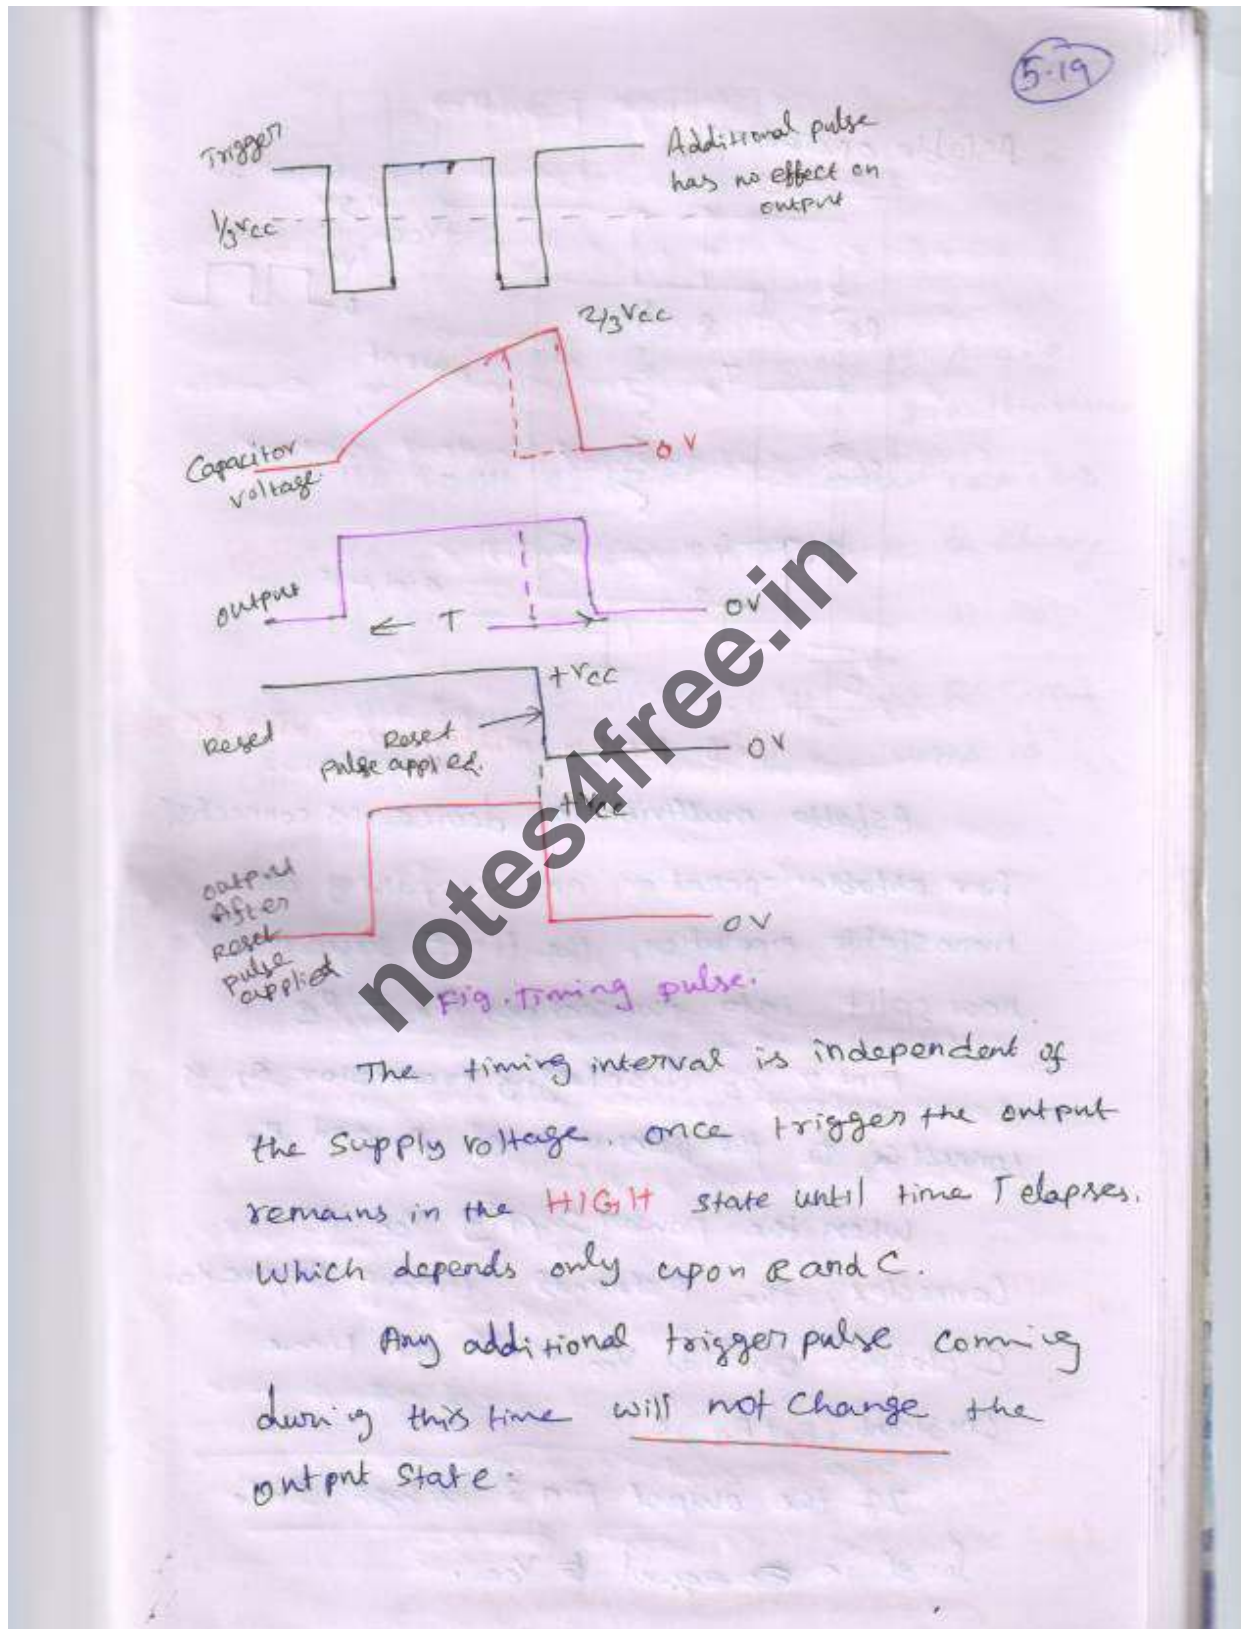 5.19
Trigger
Additional pulse
has no effect on
output
1/3 Vcc
2/3 Vcc
Capacitor
voltage.
0 V
output
← T →
0V
+Vcc
Reset
Reset
pulse applied.
0V
+Vcc
output
After
reset
pulse
applied
0V
notes4free.in
Fig. Timing pulse.
The timing interval is independent of
the supply voltage. once trigger the output
remains in the HIGH state until time T elapses.
Which depends only upon R and C.
Any additional trigger pulse coming
during this time will not change the
output state.